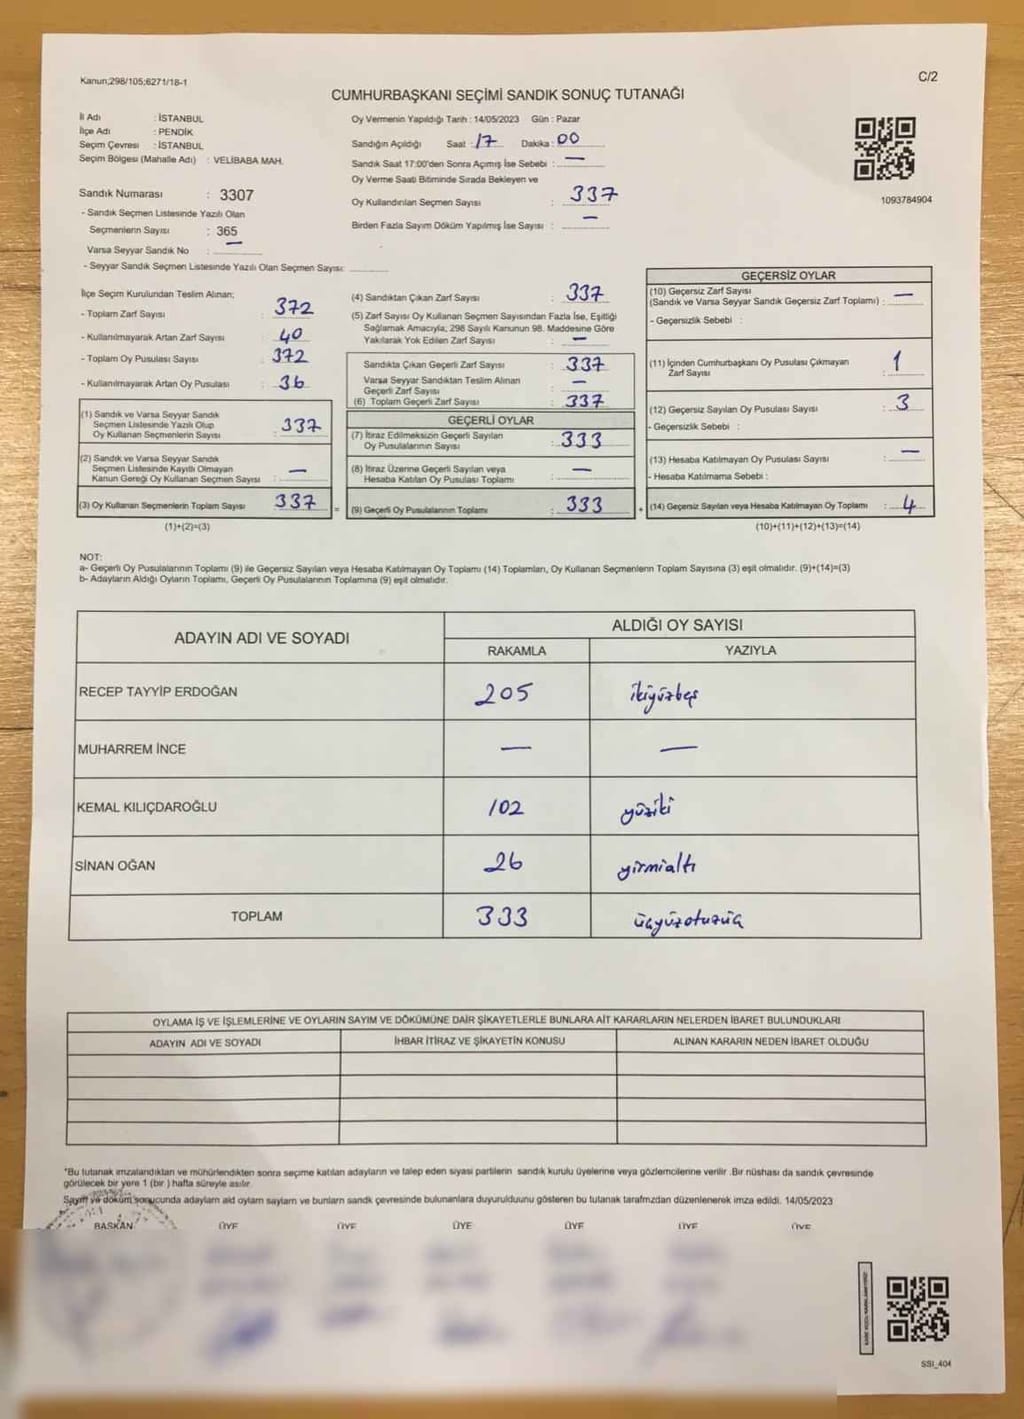 Kanun;298/105;6271/18-1
C/2
CUMHURBAŞKANI SEÇİMİ SANDIK SONUÇ TUTANAĞI
İl Adı : İSTANBUL
İlçe Adı : PENDİK
Seçim Çevresi : İSTANBUL
Seçim Bölgesi (Mahalle Adı) : VELİBABA MAH.
Sandık Numarası : 3307
- Sandık Seçmen Listesinde Yazılı Olan
Seçmenlerin Sayısı : 365
Varsa Seyyar Sandık No : —
- Seyyar Sandık Seçmen Listesinde Yazılı Olan Seçmen Sayısı: ..........
Oy Vermenin Yapıldığı Tarih : 14/05/2023 Gün : Pazar
Sandığın Açıldığı Saat : 17 Dakika : 00
Sandık Saat 17:00'den Sonra Açımış İse Sebebi : —
Oy Verme Saati Bitiminde Sırada Bekleyen ve
Oy Kullandırılan Seçmen Sayısı : 337
Birden Fazla Sayım Döküm Yapılmış İse Sayısı : —
1093784904
İlçe Seçim Kurulundan Teslim Alınan;
- Toplam Zarf Sayısı : 372
- Kullanılmayarak Artan Zarf Sayısı : 40
- Toplam Oy Pusulası Sayısı : 372
- Kullanılmayarak Artan Oy Pusulası : 36
(1) Sandık ve Varsa Seyyar Sandık
Seçmen Listesinde Yazılı Olup
Oy Kullanan Seçmenlerin Sayısı : 337
(2) Sandık ve Varsa Seyyar Sandık
Seçmen Listesinde Kayıtlı Olmayan
Kanun Gereği Oy Kullanan Seçmen Sayısı : —
(3) Oy Kullanan Seçmenlerin Toplam Sayısı : 337
(1)+(2)=(3)
=
(4) Sandıktan Çıkan Zarf Sayısı : 337
(5) Zarf Sayısı Oy Kullanan Seçmen Sayısından Fazla İse, Eşitliği
Sağlamak Amacıyla; 298 Sayılı Kanunun 98. Maddesine Göre
Yakılarak Yok Edilen Zarf Sayısı : —
Sandıkta Çıkan Geçerli Zarf Sayısı : 337
Varsa Seyyar Sandıktan Teslim Alınan
Geçerli Zarf Sayısı : —
(6) Toplam Geçerli Zarf Sayısı : 337
GEÇERLİ OYLAR
(7) İtiraz Edilmeksizin Geçerli Sayılan
Oy Pusulalarının Sayısı : 333
(8) İtiraz Üzerine Geçerli Sayılan veya
Hesaba Katılan Oy Pusulası Toplamı : —
(9) Geçerli Oy Pusulalarının Toplamı : 333
+
GEÇERSİZ OYLAR
(10) Geçersiz Zarf Sayısı
(Sandık ve Varsa Seyyar Sandık Geçersiz Zarf Toplamı) : —
- Geçersizlik Sebebi :
(11) İçinden Cumhurbaşkanı Oy Pusulası Çıkmayan
Zarf Sayısı : 1
(12) Geçersiz Sayılan Oy Pusulası Sayısı : 3
- Geçersizlik Sebebi :
(13) Hesaba Katılmayan Oy Pusulası Sayısı : —
- Hesaba Katılmama Sebebi :
(14) Geçersiz Sayılan veya Hesaba Katılmayan Oy Toplamı : 4
(10)+(11)+(12)+(13)=(14)
NOT:
a- Geçerli Oy Pusulalarının Toplamı (9) ile Geçersiz Sayılan veya Hesaba Katılmayan Oy Toplamı (14) Toplamları, Oy Kullanan Seçmenlerin Toplam Sayısına (3) eşit olmalıdır. (9)+(14)=(3)
b- Adayların Aldığı Oyların Toplamı, Geçerli Oy Pusulalarının Toplamına (9) eşit olmalıdır.
ADAYIN ADI VE SOYADI
ALDIĞI OY SAYISI
RAKAMLA YAZIYLA
RECEP TAYYİP ERDOĞAN 205 ikiyüzbeş
MUHARREM İNCE — —
KEMAL KILIÇDAROĞLU 102 yüziki
SİNAN OĞAN 26 yirmialtı
TOPLAM 333 üçyüzotuzüç
OYLAMA İŞ VE İŞLEMLERİNE VE OYLARIN SAYIM VE DÖKÜMÜNE DAİR ŞİKAYETLERLE BUNLARA AİT KARARLARIN NELERDEN İBARET BULUNDUKLARI
ADAYIN ADI VE SOYADI İHBAR İTİRAZ VE ŞİKAYETİN KONUSU ALINAN KARARIN NEDEN İBARET OLDUĞU
*Bu tutanak imzalandıktan ve mühürlendikten sonra seçime katılan adayların ve talep eden siyasi partilerin sandık kurulu üyelerine veya gözlemcilerine verilir .Bir nüshası da sandık çevresinde
görülecek bir yere 1 (bir ) hafta süreyle asılır.
Sayım ve döküm sonucunda adayların aldı oyların sayların ve bunların sandk çevresinde bulunanlara duyurulduunu gösteren bu tutanak tarafmzdan düzenlenerek imza edildi. 14/05/2023
BAŞKAN ÜYE ÜYE ÜYE ÜYE ÜYE ÜYE
SSI_404